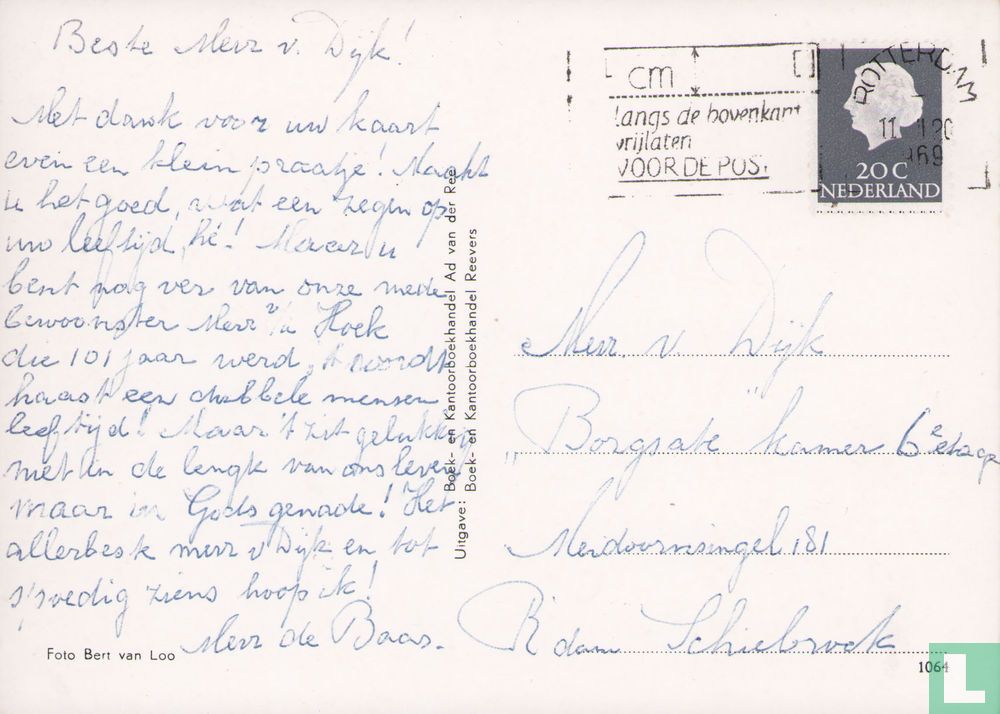 Beste Mevr v. Dijk!
Met dank voor uw kaart
even een klein praatje! Maakt
u het goed, wat een zegen op
uw leeftijd, hé! Maar u
bent nog ver van onze mede
bewoonster Mevr v/d Hoek
die 101 jaar werd, 't wordt
haast een dubbele mensen
leeftijd! Maar 't zit gelukkig
niet in de lengte van ons leven
maar in Gods genade! Het
allerbeste mevr v Dijk en tot
spoedig ziens hoop ik!
Mevr de Baas.
Foto Bert van Loo
Uitgave: Boek- en Kantoorboekhandel Ad van der Ree
Boek- en Kantoorboekhandel Reevers
cm
langs de bovenkant
vrijlaten
VOOR DE POS.
ROTTERDAM
11
20
969
20 C
NEDERLAND
Mevr. v. Dijk
"Borgsate" kamer 6 2e etage
Meidoornsingel 181
R'dam Schiebroek
1064
L